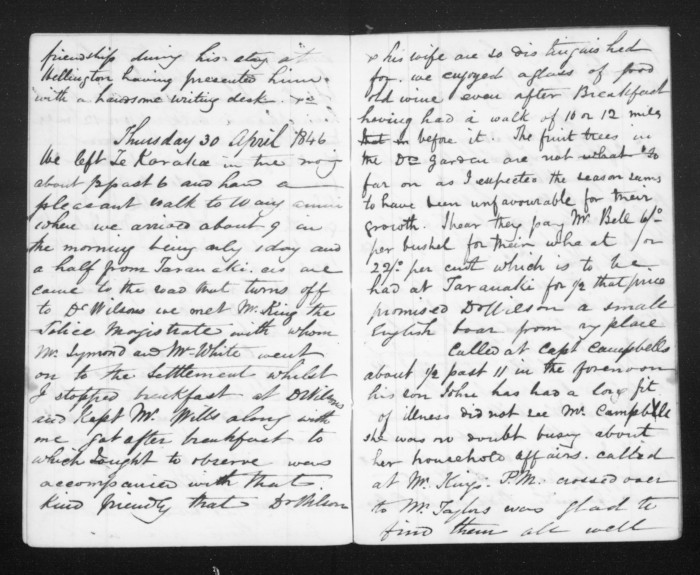 friendship during his stay at
Wellington having presented him
with a handsome writing desk.
Thursday 30 April 1846
We left Te Koraka in the mog
about ½ past 6 and had a
pleasant walk to Wany
where we arrived about 9 in
the morning being only 1 day and
a half from Taranaki. as we
came to the road that turns off
to Dr Wilsons we met Mr King the
Police Magistrate with whom
Mr Symond and Mr White went
on to the Settlement whilst
I stopped breakfast at Dr Wilsons
and Kept Mr. Wills along with
me. Sat after breakfast to
which I ought to observe was
accompanied with that
kind friendly that Dr Wilson
& his wife are so distinguished
for. we enjoyed a glass of good
old wine even after Breakfast
having had a walk of 10 or 12 miles
that in before it. The fruit trees in
the Drs Garden are not what so
far on as I expected the season seems
to have been unfavourable for their
growth. I hear they pay Mr. Bell 6/
per bushel for their wheat / or
22/ per cwt which is to be
had at Taranaki for ½ that price
promised Dr Wilson a small
English boar from my place
Called at Capt Campbells
about ½ past 11 in the forenoon
his son John has had a long fit
of illness did not see Mrs. Campbell
she was no doubt busy about
her household affairs. called
at Mr. Kings. P.M. crossed over
to Mr. Taylors was glad to
find them all well